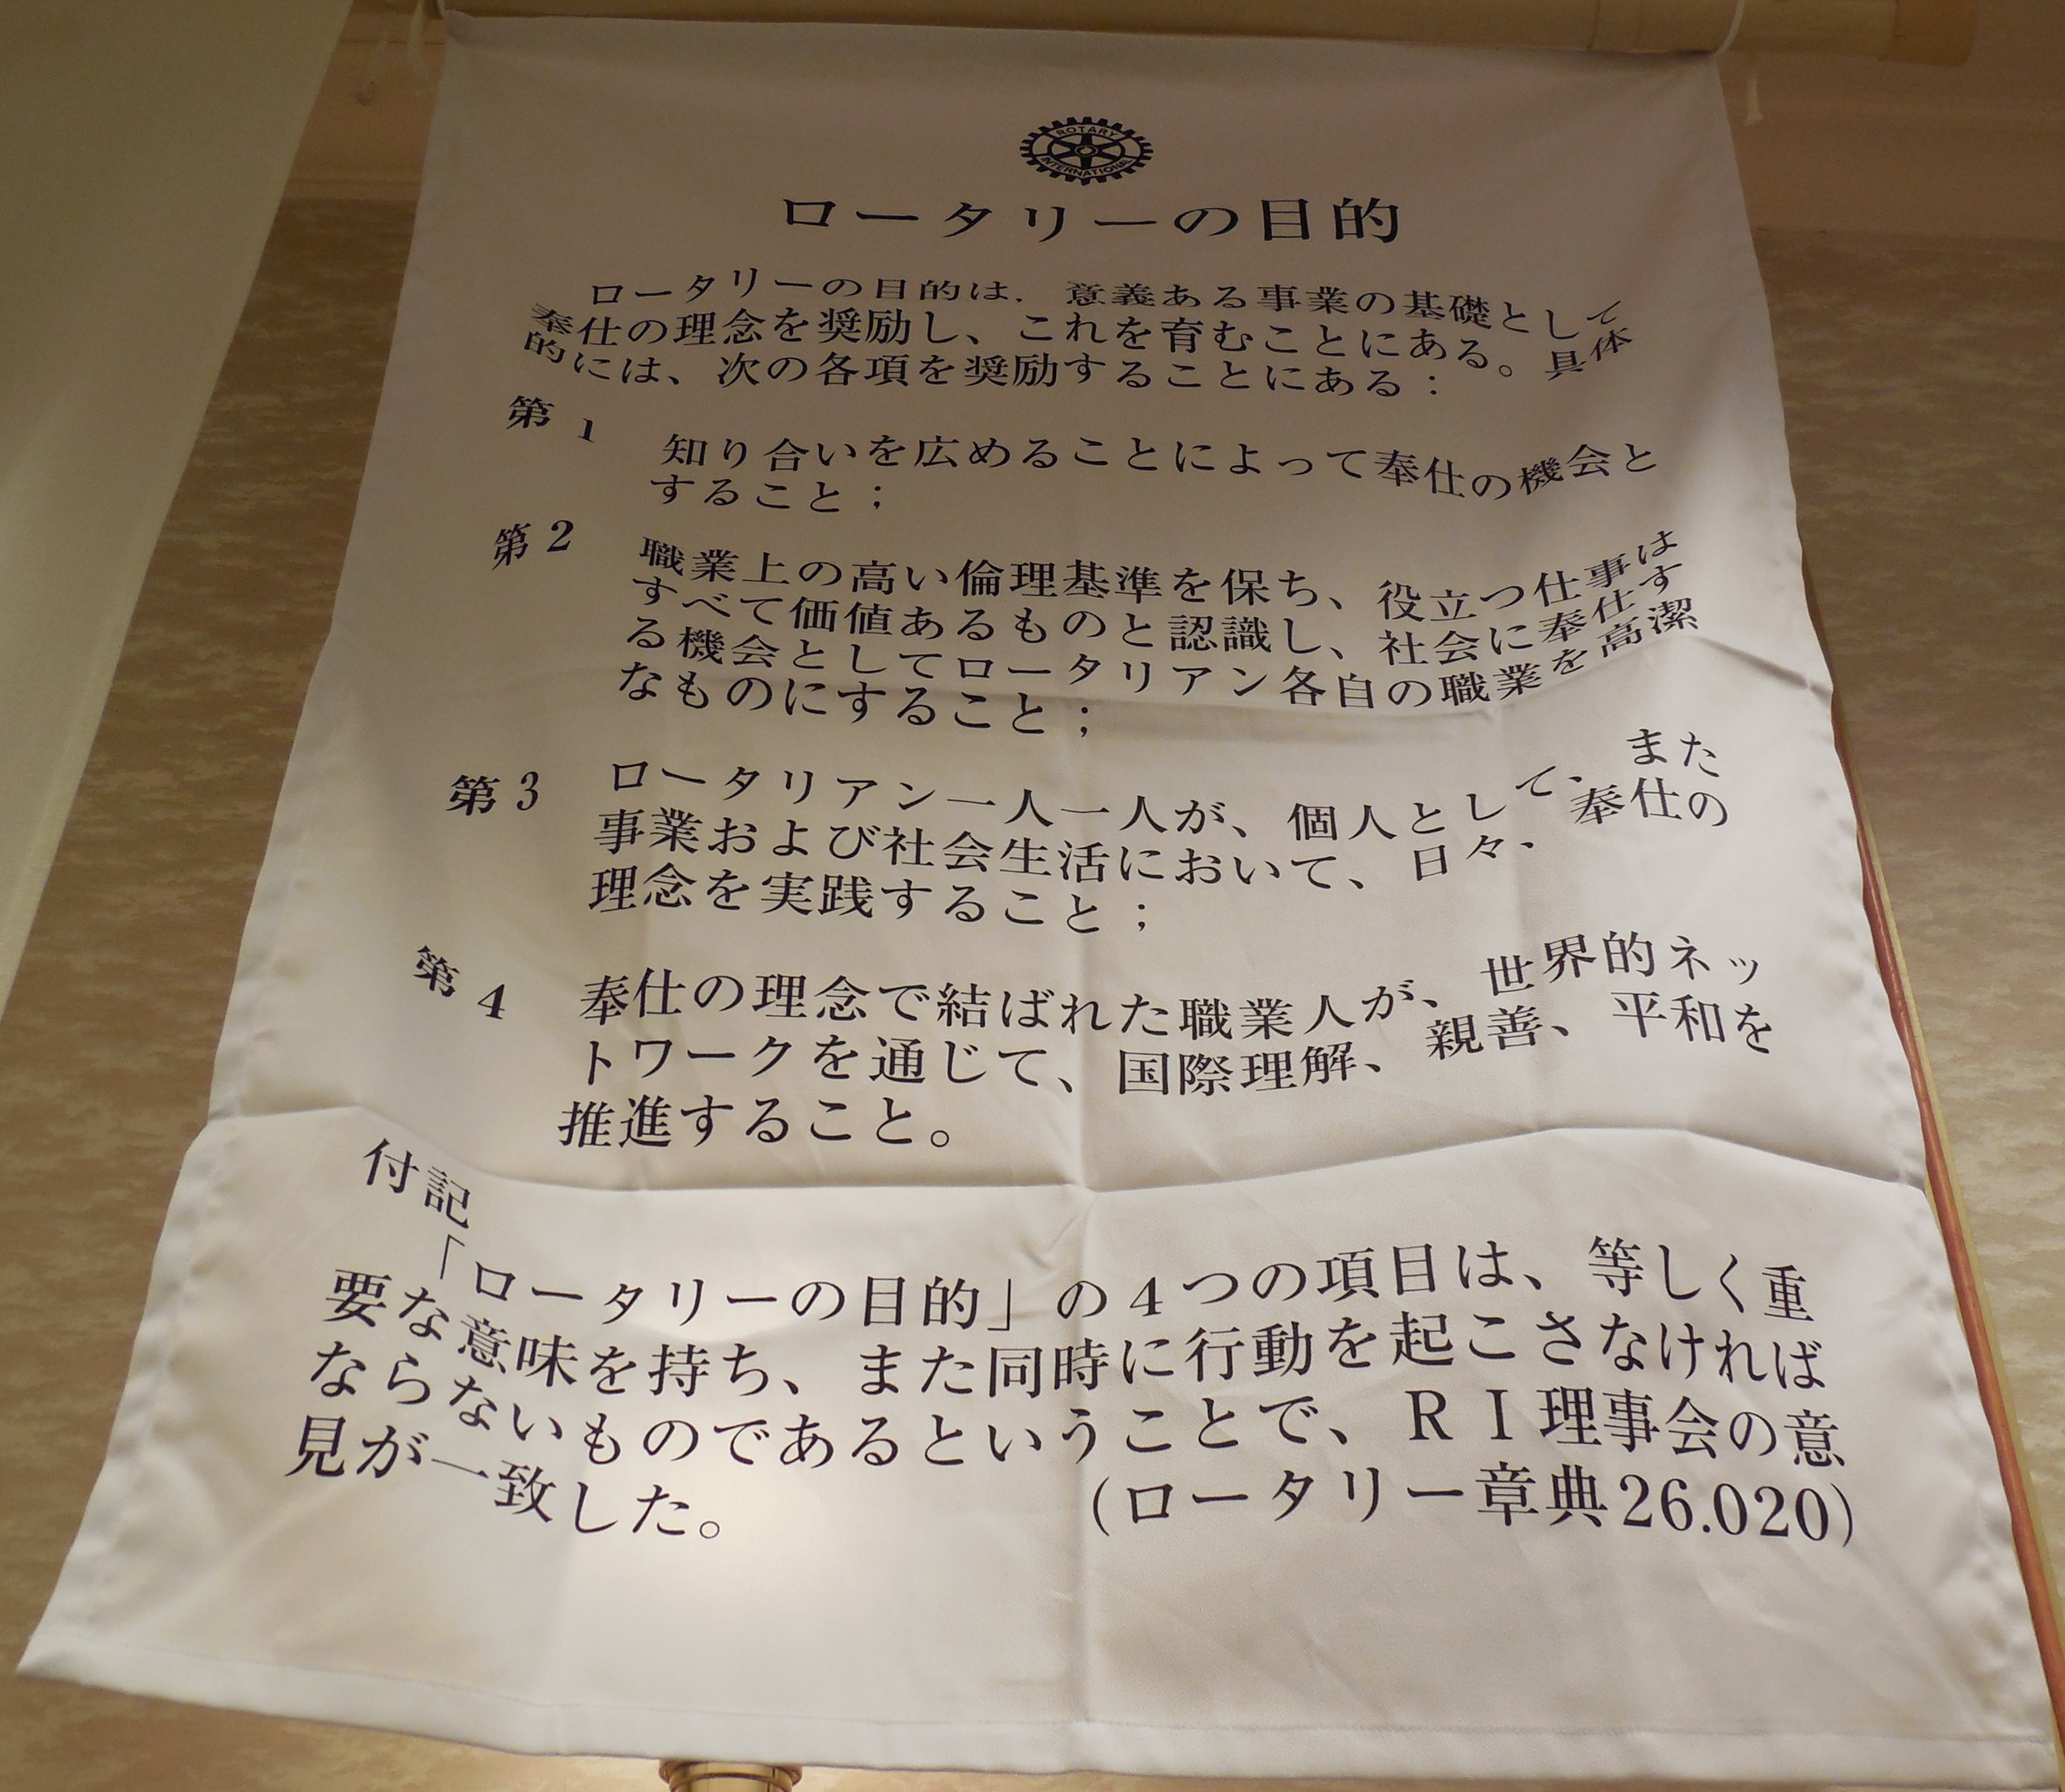 ROTARY
INTERNATIONAL
ロータリーの目的
ロータリーの目的は、意義ある事業の基礎として
奉仕の理念を奨励し、これを育むことにある。具体
的には、次の各項を奨励することにある：
第1
知り合いを広めることによって奉仕の機会と
すること；
第2
職業上の高い倫理基準を保ち、役立つ仕事は
すべて価値あるものと認識し、社会に奉仕す
る機会としてロータリアン各自の職業を高潔
なものにすること；
第3
ロータリアン一人一人が、個人として、また
事業および社会生活において、日々、奉仕の
理念を実践すること；
第4
奉仕の理念で結ばれた職業人が、世界的ネッ
トワークを通じて、国際理解、親善、平和を
推進すること。
付記
「ロータリーの目的」の4つの項目は、等しく重
要な意味を持ち、また同時に行動を起こさなければ
ならないものであるということで、ＲＩ理事会の意
見が一致した。 (ロータリー章典26.020)